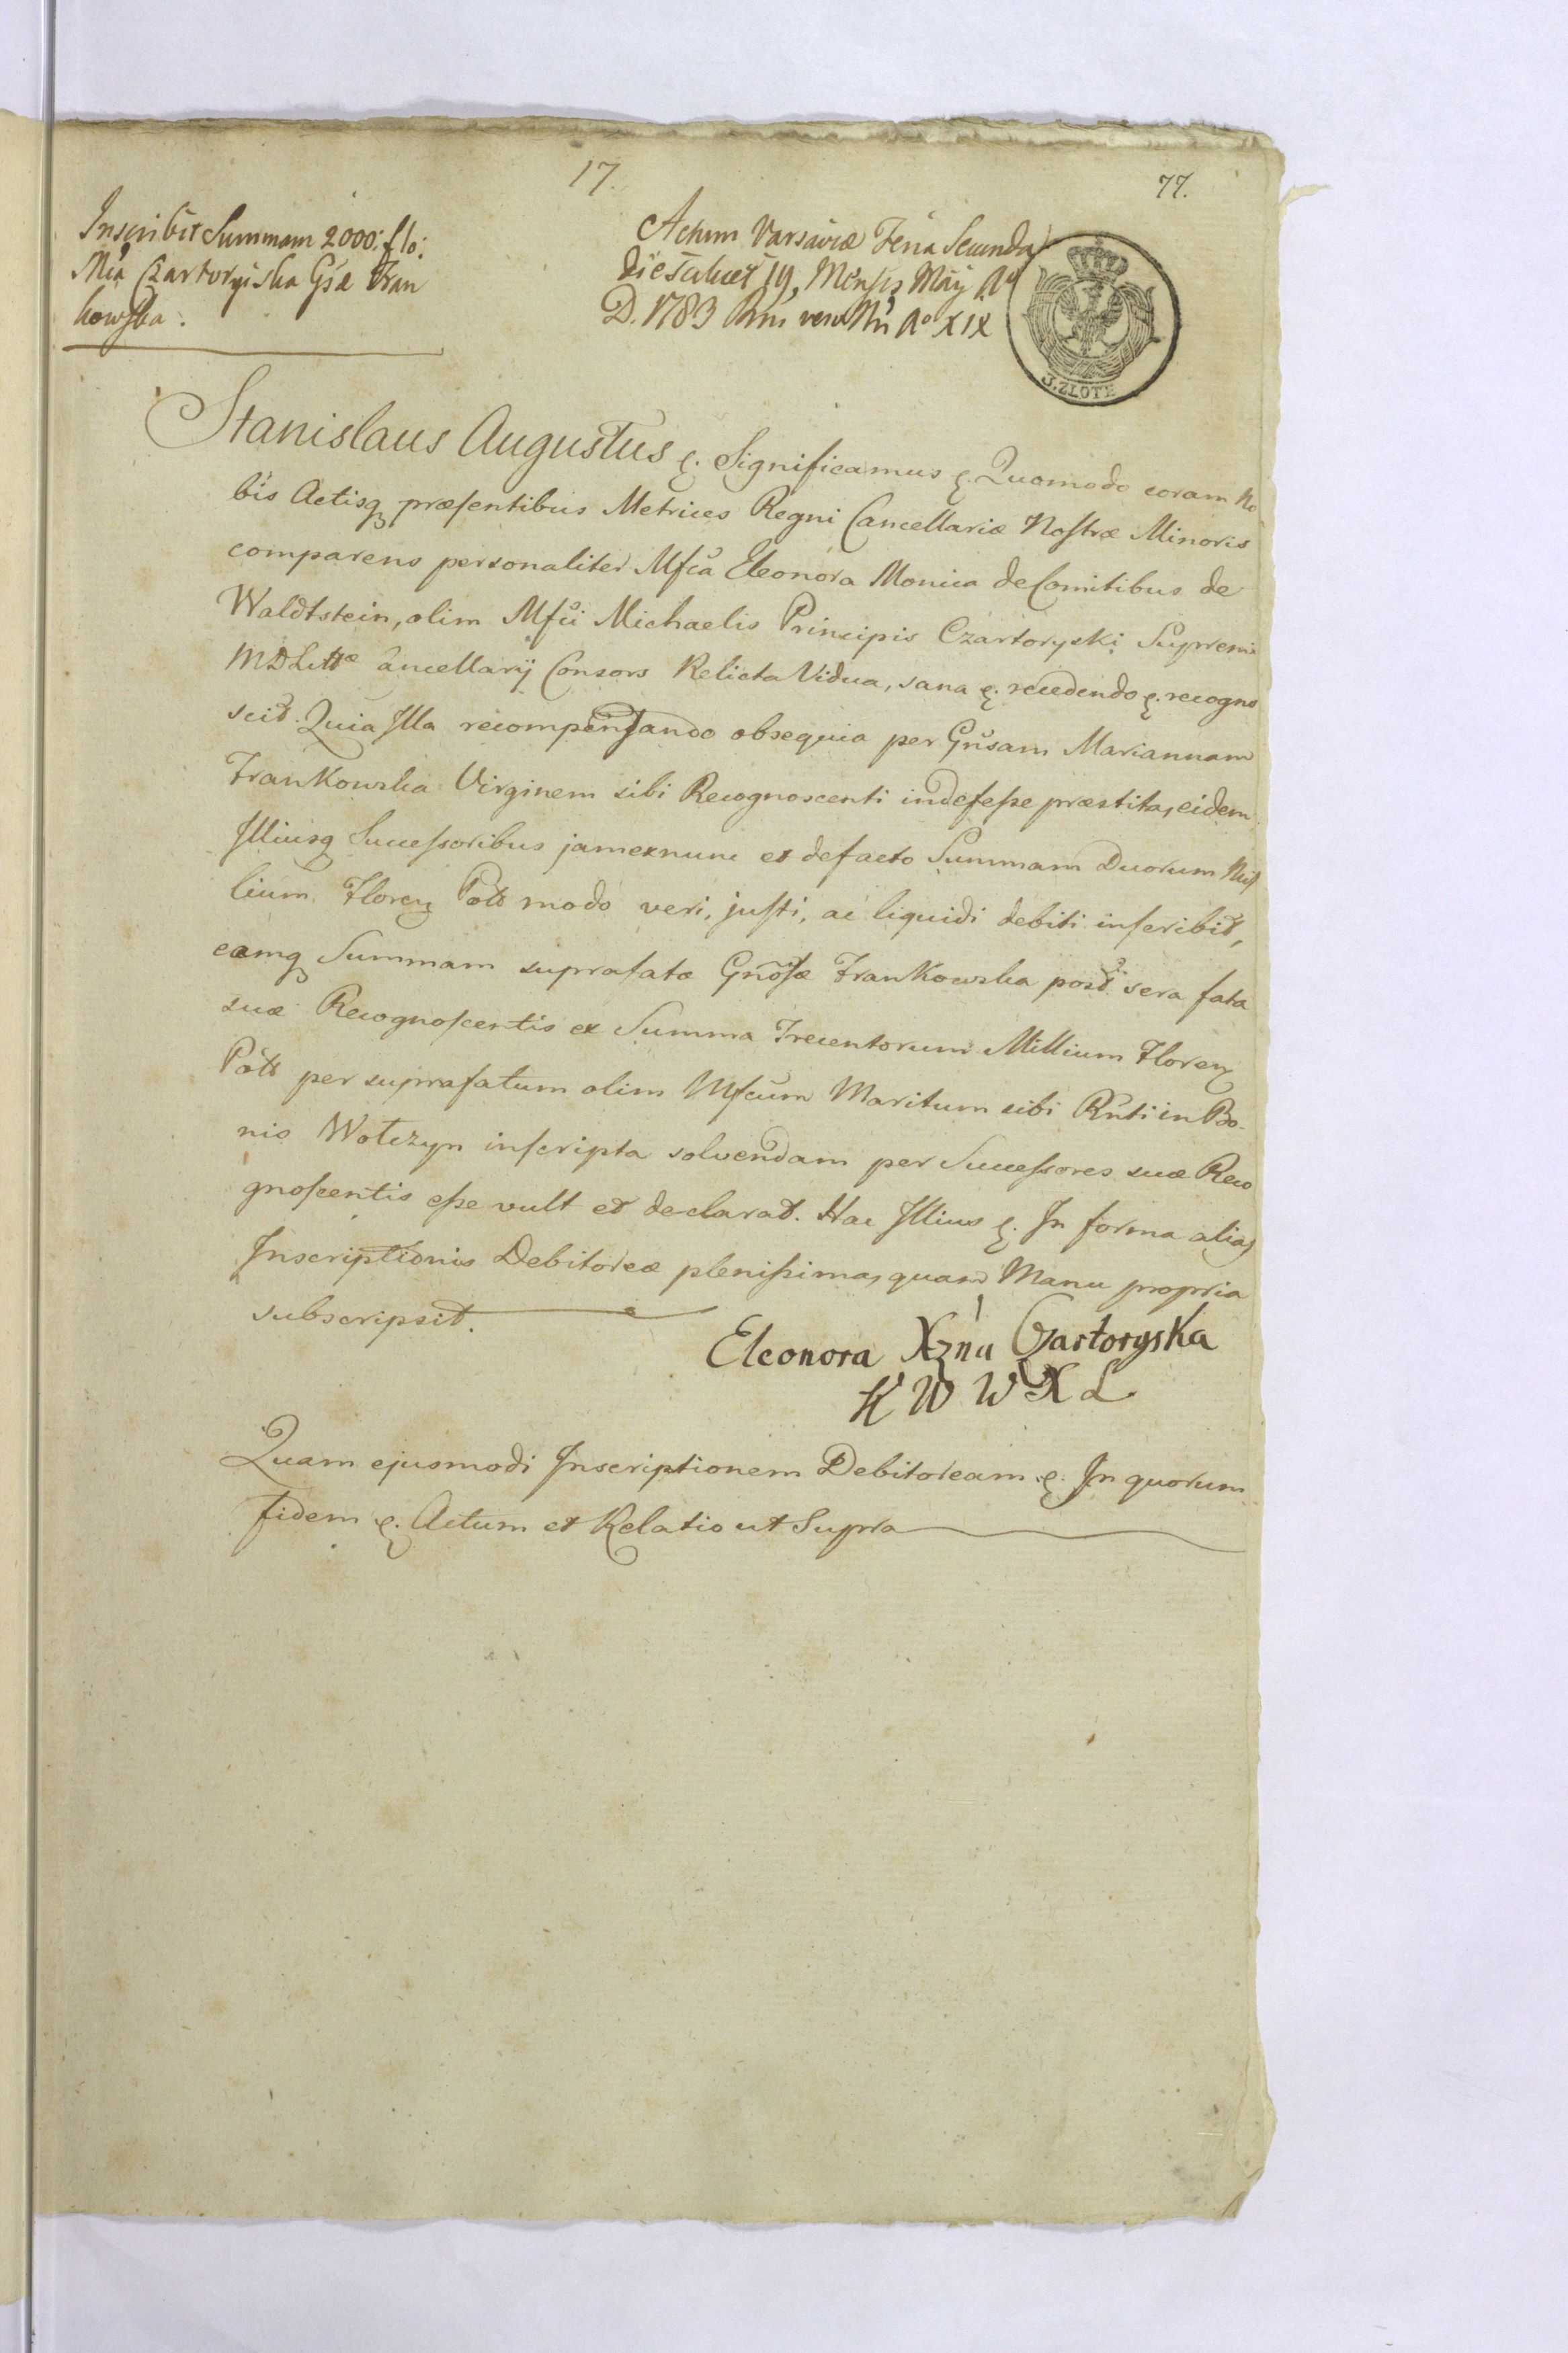 17.
77.
Inscribit Summam 2000: flo:
Mca Czartoryiska Gsæ Fran
kowska.
Actum Varsaviæ Feria Secunda
die scilicet 19, Mensis Maij Ao
D. 1783 Rni vero Nri Ao XIX
3. ZŁOTE
Stanislaus Augustus &. Significamus &. Quomodo coram No
bis Actisq præsentibus Metrices Regni Cancellariæ Nostræ Minoris
comparens personaliter Mfca Eleonora Monica de Comitibus de
Waldtstein, olim Mfci Michaelis Principis Czartoryski Supremi
MDLittæ Cancellarij Consors Relicta Vidua, sana &. recedendo &. recogno
scit. Quia Illa recompensando obsequia per Gnsam Mariannam
Frankowska Virginem sibi Recognoscenti indefesse præstita, eidem
Illiusq Successoribus jam ex nunc et de facto Summam Duorum Mil
lium Floren Polo modo veri, justi, ac liquidi debiti inscribit,
eamq Summam suprafatæ Gnosæ Frankowska post sera fata
suæ Recognoscentis ex Summa Trecentorum Millium Floren
Polo per suprafatum olim Mfcum Maritum sibi Rnti in Bo-
nis Wołczyn inscripta solvendam per Successores suæ Reco
gnoscentis esse vult et declarat. Hac Illius &. In forma alias
Inscriptionis Debitoreæ plenissima, quam Manu propria
subscripsit.
Eleonora Xzna Czartoryska
K W W X L
Quam ejusmodi Inscriptionem Debitoream &. In quorum
fidem &. Actum et Relatio ut Supra